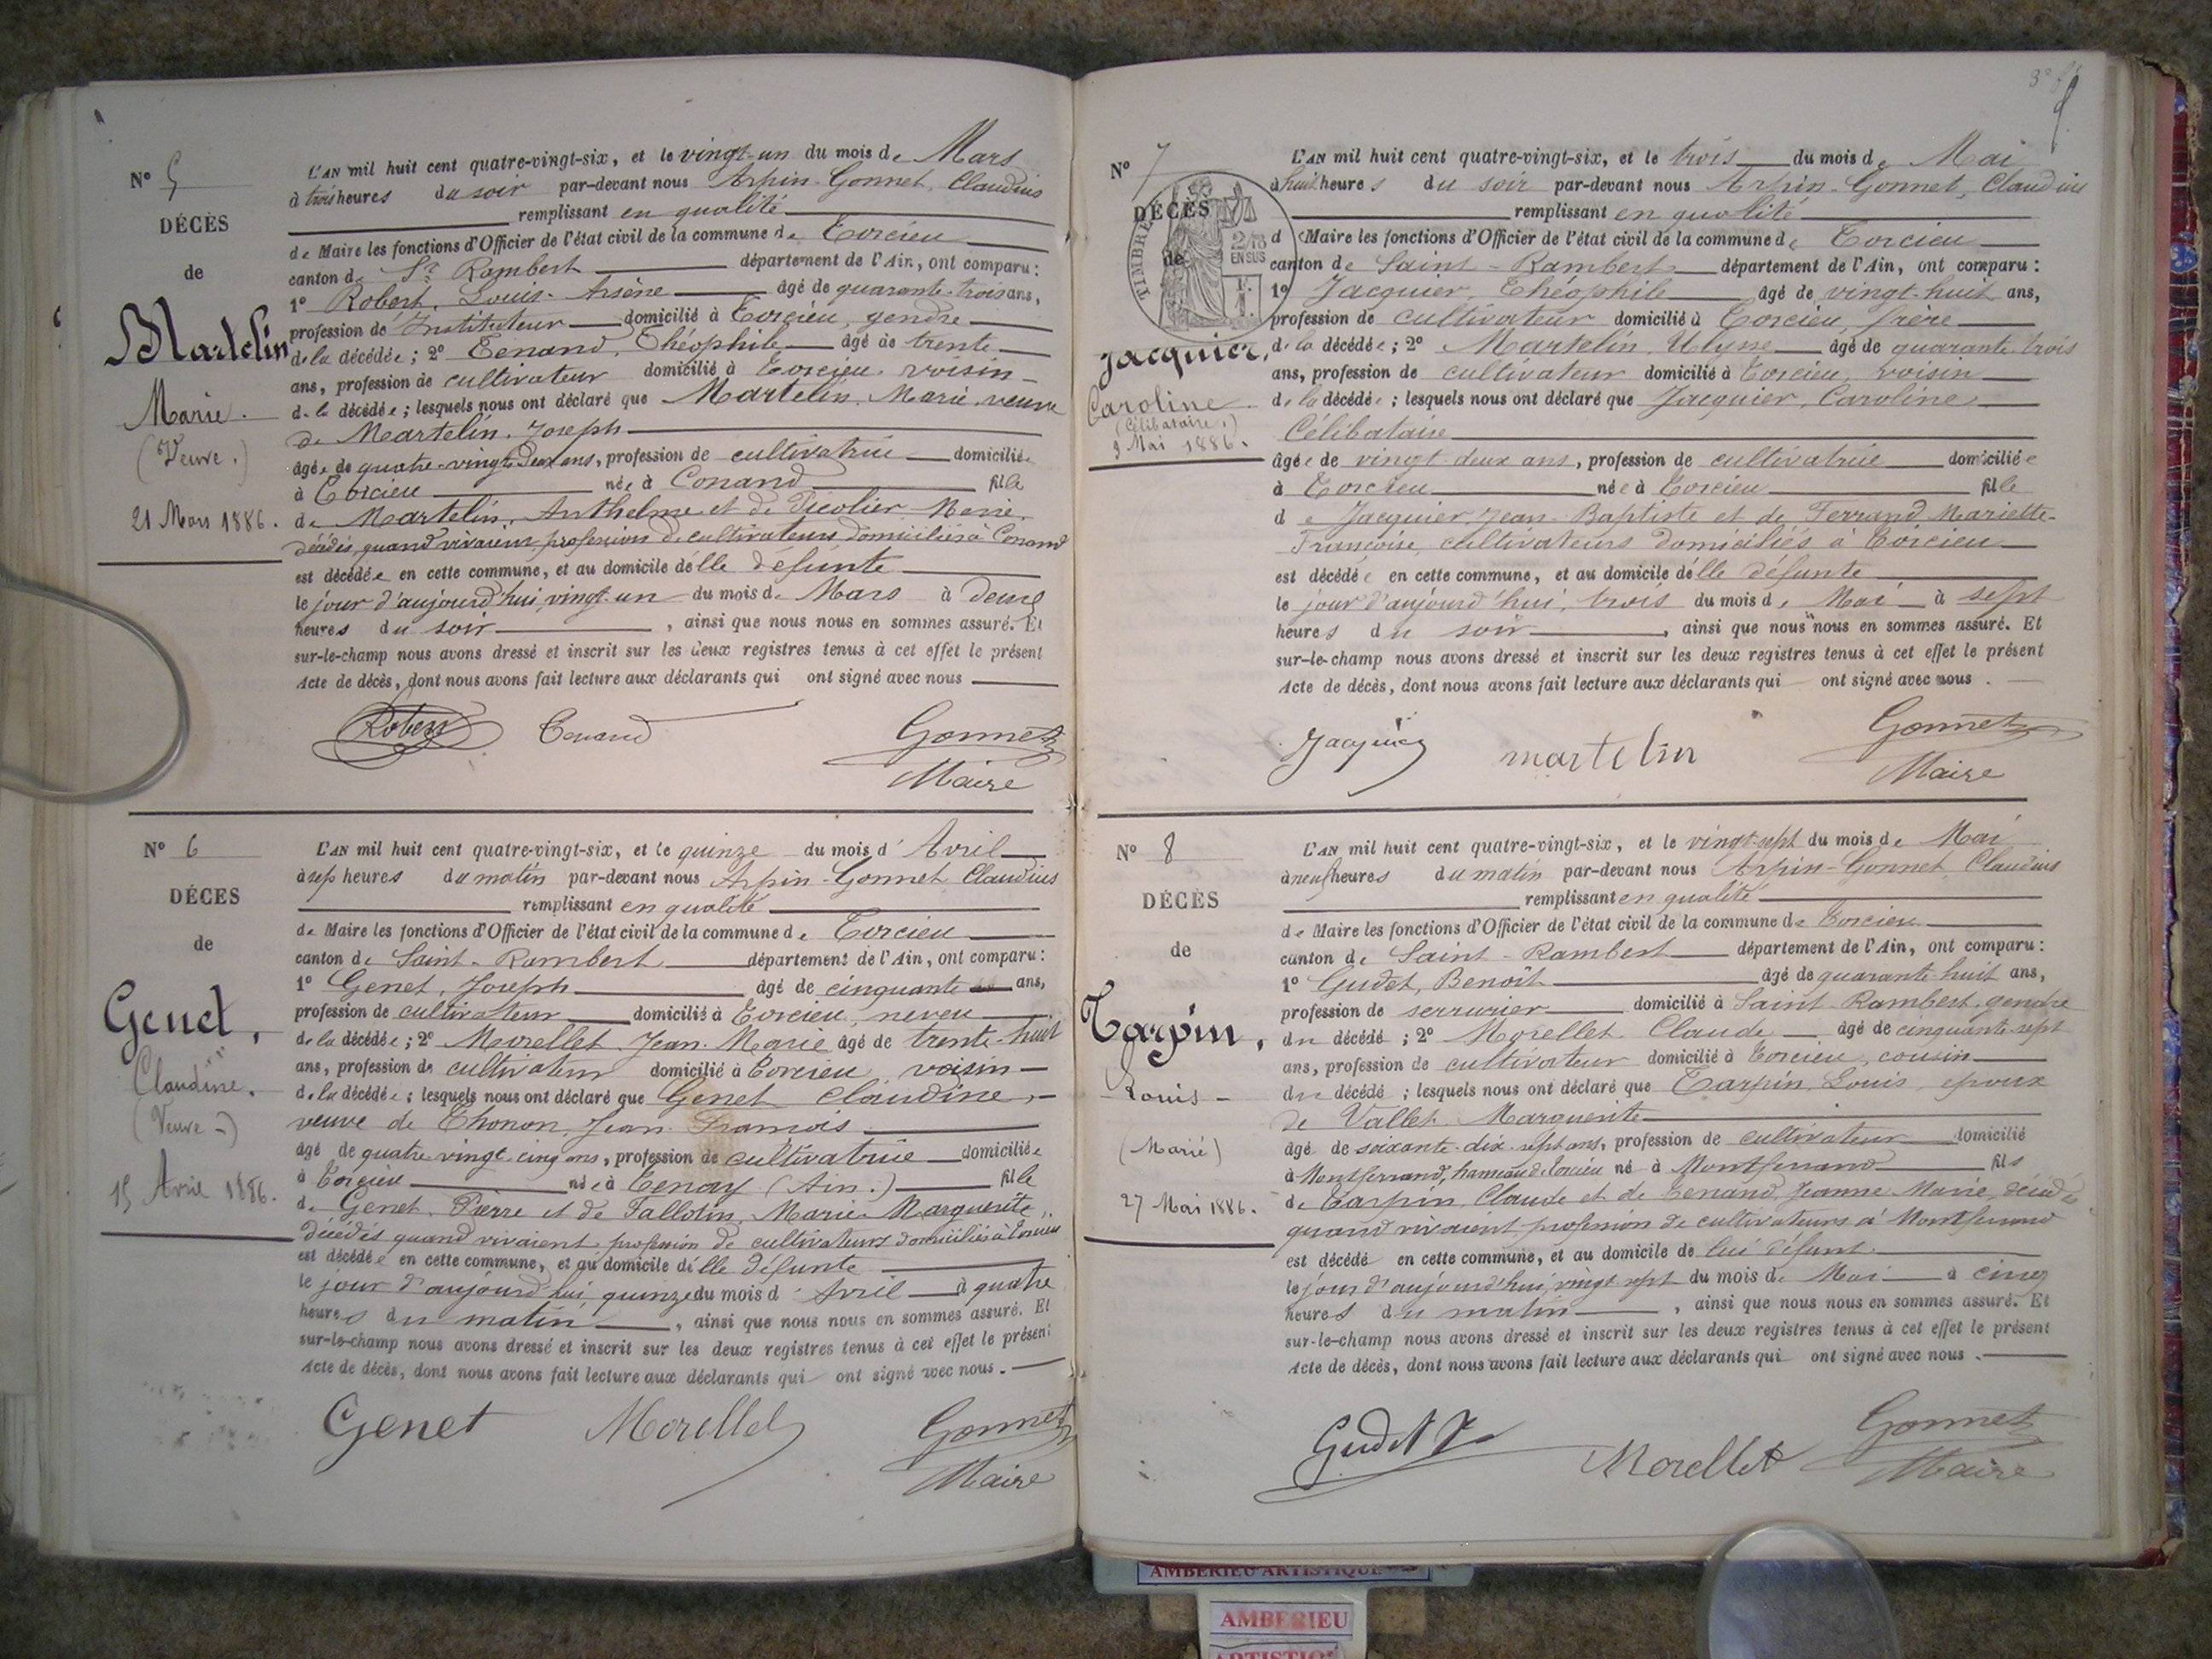 N° 5
DÉCÈS
de
Martelin
Marie.
(Veuve.)
21 Mars 1886.
L'AN mil huit cent quatre-vingt-six, et le vingt-un du mois de Mars
à trois heures du soir par-devant nous Arpin-Gonnet, Claudius
remplissant en qualité
de Maire les fonctions d'Officier de l'état civil de la commune de Torcieu
canton de St Rambert département de l'Ain, ont comparu :
1° Robert, Louis-Arsène âgé de quarante-trois ans,
profession de Instituteur domicilié à Torcieu, gendre
de la décédée ; 2° Tenand, Théophile âgé de trente
ans, profession de cultivateur domicilié à Torcieu, voisin
de la décédée ; lesquels nous ont déclaré que Martelin, Marie, veuve
de Martelin, Joseph
âgée de quatre-vingt-deux ans, profession de cultivatrice domiciliée
à Torcieu née à Conand fille
de Martelin, Anthelme et de Picolier Marie,
décédés, quand vivaient profession de cultivateurs domiciliés à Conand
est décédée en cette commune, et au domicile d'elle défunte
le jour d'aujourd'hui vingt-un du mois de Mars à deux
heures du soir , ainsi que nous nous en sommes assuré. Et
sur-le-champ nous avons dressé et inscrit sur les deux registres tenus à cet effet le présent
Acte de décès, dont nous avons fait lecture aux déclarants qui ont signé avec nous
Robert Tenand Gonnet
Maire
N° 6
DÉCÈS
de
Genet,
Claudine.
(Veuve -)
15 Avril 1886.
L'AN mil huit cent quatre-vingt-six, et le quinze du mois d' Avril
à sept heures du matin par-devant nous Arpin-Gonnet Claudius
remplissant en qualité
de Maire les fonctions d'Officier de l'état civil de la commune de Torcieu
canton de Saint-Rambert département de l'Ain, ont comparu :
1° Genet, Joseph âgé de cinquante ans,
profession de cultivateur domicilié à Torcieu, neveu
de la décédée ; 2° Morellet Jean-Marie âgé de trente-huit
ans, profession de cultivateur domicilié à Torcieu, voisin
de la décédée ; lesquels nous ont déclaré que Genet Claudine,
veuve de Thonon, Jean François
âgé de quatre-vingt-cinq ans, profession de cultivatrice domiciliée
à Torcieu née à Tenay (Ain.) fille
de Genet, Pierre et de Fallotin, Marie Marguerite,
décédés quand vivaient profession de cultivateurs domiciliés à Torcieu
est décédée en cette commune, et au domicile d'elle défunte
le jour d'aujourd'hui quinze du mois d' Avril à quatre
heures du matin , ainsi que nous nous en sommes assuré. Et
sur-le-champ nous avons dressé et inscrit sur les deux registres tenus à cet effet le présent
Acte de décès, dont nous avons fait lecture aux déclarants qui ont signé avec nous.
Genet Morellet Gonnet
Maire
N° 7
DÉCÈS
de
TIMBRE
2/10
EN SUS
Jacquier,
Caroline
(Célibataire.)
3 Mai 1886.
L'AN mil huit cent quatre-vingt-six, et le trois du mois de Mai
à huit heures du soir par-devant nous Arpin-Gonnet, Claudius
remplissant en qualité
de Maire les fonctions d'Officier de l'état civil de la commune de Torcieu
canton de Saint-Rambert département de l'Ain, ont comparu :
1° Jacquier, Théophile âgé de vingt-huit ans,
profession de cultivateur domicilié à Torcieu, frère
de la décédée ; 2° Martelin, Ulysse âgé de quarante-trois
ans, profession de cultivateur domicilié à Torcieu, voisin
de la décédée ; lesquels nous ont déclaré que Jacquier, Caroline
Célibataire
âgée de vingt-deux ans, profession de cultivatrice domiciliée
à Torcieu née à Torcieu fille
de Jacquier, Jean-Baptiste et de Ferrand Mariette-
Françoise, cultivateurs domiciliés à Torcieu
est décédée en cette commune, et au domicile d'elle défunte
le jour d'aujourd'hui, trois du mois de Mai à sept
heures du soir , ainsi que nous nous en sommes assuré. Et
sur-le-champ nous avons dressé et inscrit sur les deux registres tenus à cet effet le présent
Acte de décès, dont nous avons fait lecture aux déclarants qui ont signé avec nous.
Jacquier martelin Gonnet
Maire
N° 8
DÉCÈS
de
Tarpin,
Louis -
(Marié)
27 Mai 1886.
L'AN mil huit cent quatre-vingt-six, et le vingt-sept du mois de Mai
à neuf heures du matin par-devant nous Arpin-Gonnet, Claudius
remplissant en qualité
de Maire les fonctions d'Officier de l'état civil de la commune de Torcieu
canton de Saint-Rambert département de l'Ain, ont comparu :
1° Gudet, Benoît âgé de quarante-huit ans,
profession de serrurier domicilié à Saint Rambert, gendre
du décédé ; 2° Morellet Claude âgé de cinquante-sept
ans, profession de cultivateur domicilié à Torcieu, cousin
du décédé ; lesquels nous ont déclaré que Tarpin, Louis, époux
de Vallet Marguerite
âgé de soixante-dix-sept ans, profession de cultivateur domicilié
à Montferrand, hameau de Torcieu né à Montferrand fils
de Tarpin, Claude et de Tenand, Jeanne Marie, décédés
quand vivaient profession de cultivateurs à Montferrand
est décédé en cette commune, et au domicile de lui défunt.
le jour d'aujourd'hui vingt-sept du mois de Mai à cinq
heures du matin , ainsi que nous nous en sommes assuré. Et
sur-le-champ nous avons dressé et inscrit sur les deux registres tenus à cet effet le présent
Acte de décès, dont nous avons fait lecture aux déclarants qui ont signé avec nous.
Gudet Morellet Gonnet
Maire
AMBERIEU ARTISTIQUE
AMBERIEU
ARTISTIQUE